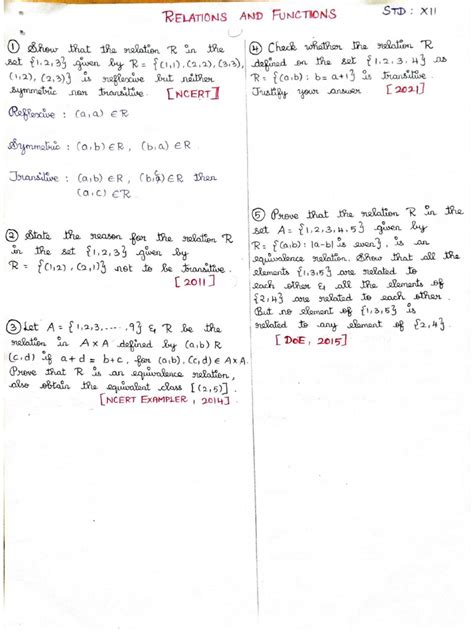 RELATIONS AND FUNCTIONS
STD : XII
① Show that the relation R in the
set {1,2,3} given by R = {(1,1), (2,2), (3,3),
(1,2), (2,3)} is reflexive but neither
symmetric nor transitive. [NCERT]
Reflexive : (a,a) ∈ R
Symmetric : (a,b) ∈ R , (b,a) ∈ R
Transitive : (a,b) ∈ R , (b,c) ∈ R then
(a,c) ∈ R
② State the reason for the relation R
in the set {1,2,3} given by
R = {(1,2), (2,1)} not to be transitive.
[2011]
③ Let A = {1,2,3,.....,9} & R be the
relation in A×A defined by (a,b) R
(c,d) if a+d = b+c, for (a,b), (c,d) ∈ A×A.
Prove that R is an equivalence relation,
also obtain the equivalent class [(2,5)].
[NCERT EXAMPLER, 2014]
④ Check whether the relation R
defined on the set {1,2,3,4} as
R = {(a,b) : b = a+1} is transitive.
Justify your answer [2021]
⑤ Prove that the relation R in the
set A = {1,2,3,4,5} given by
R = {(a,b) : |a-b| is even}, is an
equivalence relation. Show that all the
elements {1,3,5} are related to
each other & all the elements of
{2,4} are related to each other.
But no element of {1,3,5} is
related to any element of {2,4}.
[DOE, 2015]